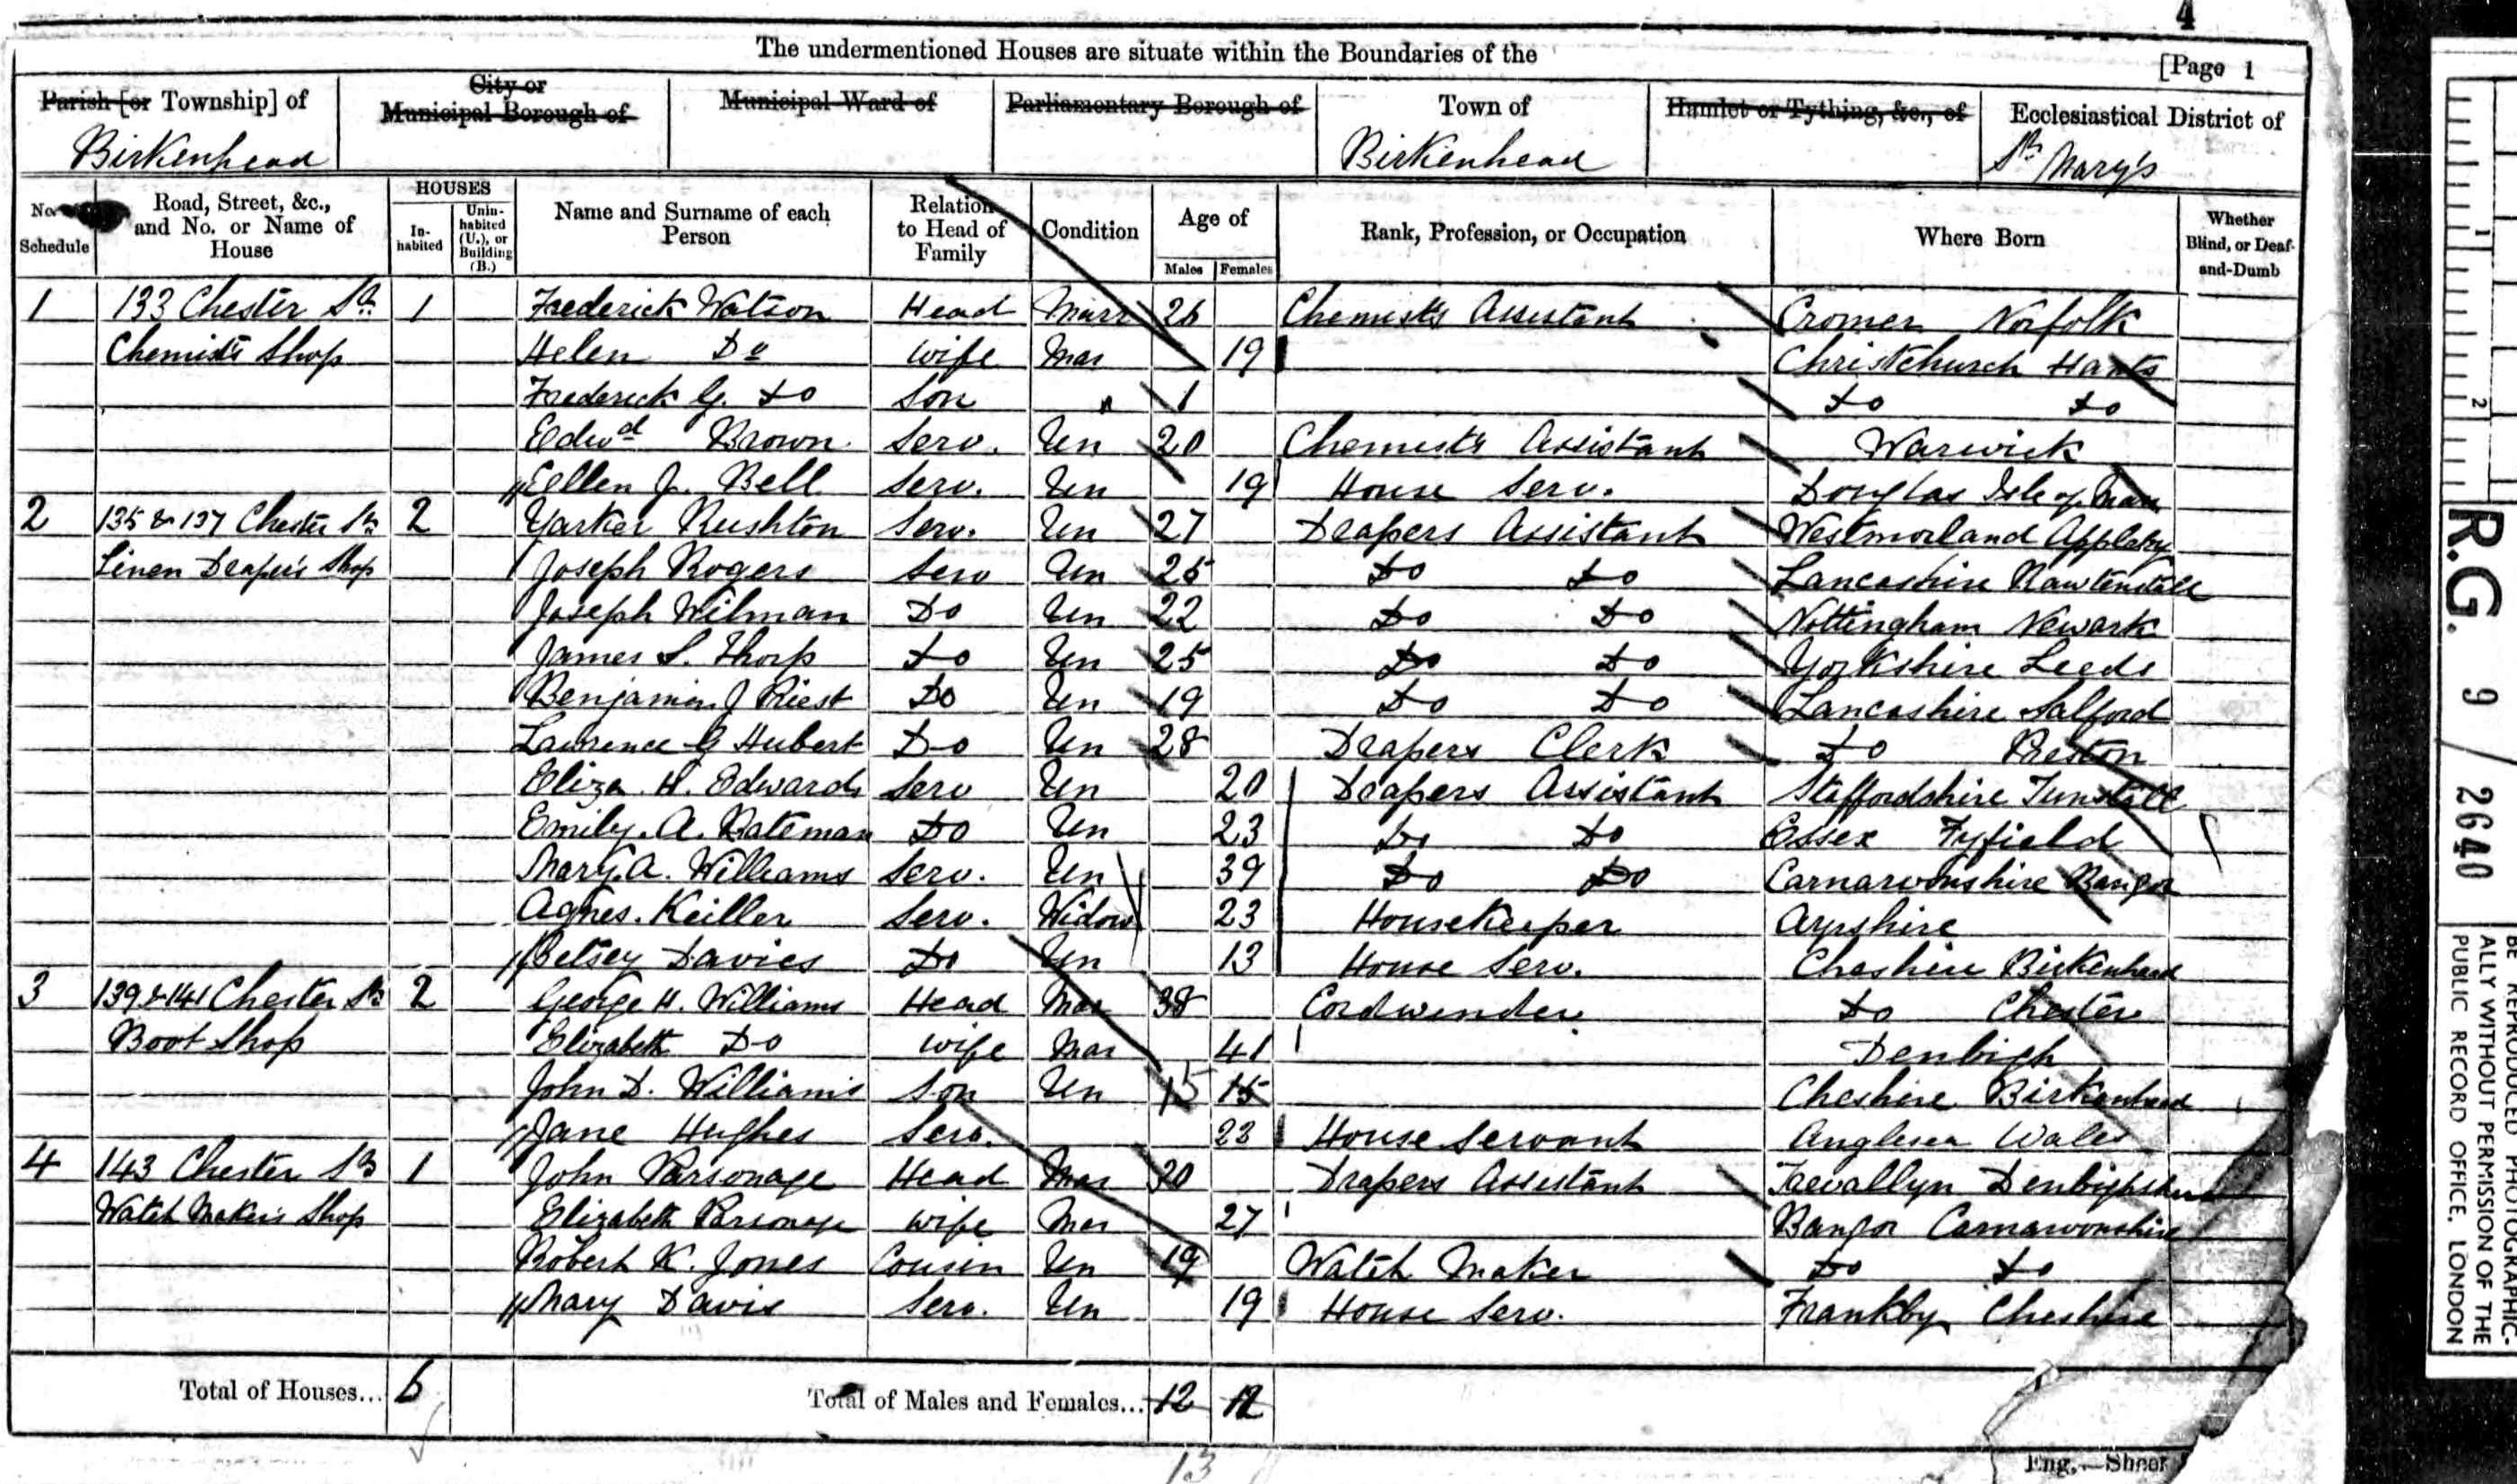 4
The undermentioned Houses are situate within the Boundaries of the
[Page 1
Parish [or Township] of
City or
Municipal Borough of
Municipal Ward of
Parliamentary Borough of
Town of
Hamlet or Tything, &c., of
Ecclesiastical District of
Birkenhead
Birkenhead
St Mary's
No. Schedule
Road, Street, &c., and No. or Name of House
HOUSES
In-habited
Unin-habited (U.), or Building (B.)
Name and Surname of each Person
Relation to Head of Family
Condition
Age of
Males
Females
Rank, Profession, or Occupation
Where Born
Whether Blind, or Deaf-and-Dumb
1 133 Chester St 1 Frederick Watson Head Marr 26 Chemists Assistant Cromer Norfolk
Chemists Shop Helen Do Wife Mar 19 Christchurch Hants
Frederick G. Do Son 1 Do Do
Edwd Brown Serv. Un 20 Chemists Assistant Warwick
Eellen J. Bell Serv. Un 19 House Serv. Douglas Isle of Man
2 135 & 137 Chester St 2 Yarker Rushton Serv. Un 27 Drapers Assistant Westmorland Appleby
Linen Draper's Shop Joseph Rogers Serv Un 25 Do Do Lancashire Rawtenstall
Joseph Wilman Do Un 22 Do Do Nottingham Newark
James S. Thorp Do Un 25 Do Do Yorkshire Leeds
Benjamin J Riest Do Un 19 Do Do Lancashire Salford
Lawrence G Hubert Do Un 28 Drapers Clerk Do Preston
Eliza. H. Edwards Serv Un 20 Drapers Assistant Staffordshire Tunstall
Emily. A. Bateman Do Un 23 Do Do Essex Fyfield
Mary. A. Williams Serv. Un 39 Do Do Carnarvonshire Bangor
Agnes. Keiller Serv. Widow 23 Housekeeper Ayrshire
Betsey Davies Do Un 13 House Serv. Cheshire Birkenhead
3 139 & 141 Chester St 2 George H. Williams Head Mar 38 Cordwinder Do Chester
Boot Shop Elizabeth Do Wife Mar 41 Denbigh
John D. Williams Son Un 15 15 Cheshire Birkenhead
Jane Hughes Serv. 23 House Servant Anglesea Wales
4 143 Chester St 1 John Parsonage Head Mar 30 Drapers Assistant Trevallyn Denbighshire
Watch Maker's Shop Elizabeth Parsonage Wife Mar 27 Bangor Carnarvonshire
Robert K. Jones Cousin Un 19 Watch Maker Do Do
Mary Davis Serv. Un 19 House Serv. Frankby Cheshire
Total of Houses... 6
Total of Males and Females... 12 12
13
Eng.—Sheet
1
2
R.G. 9/2640
BE REPRODUCED PHOTOGRAPHIC-
ALLY WITHOUT PERMISSION OF THE
PUBLIC RECORD OFFICE, LONDON